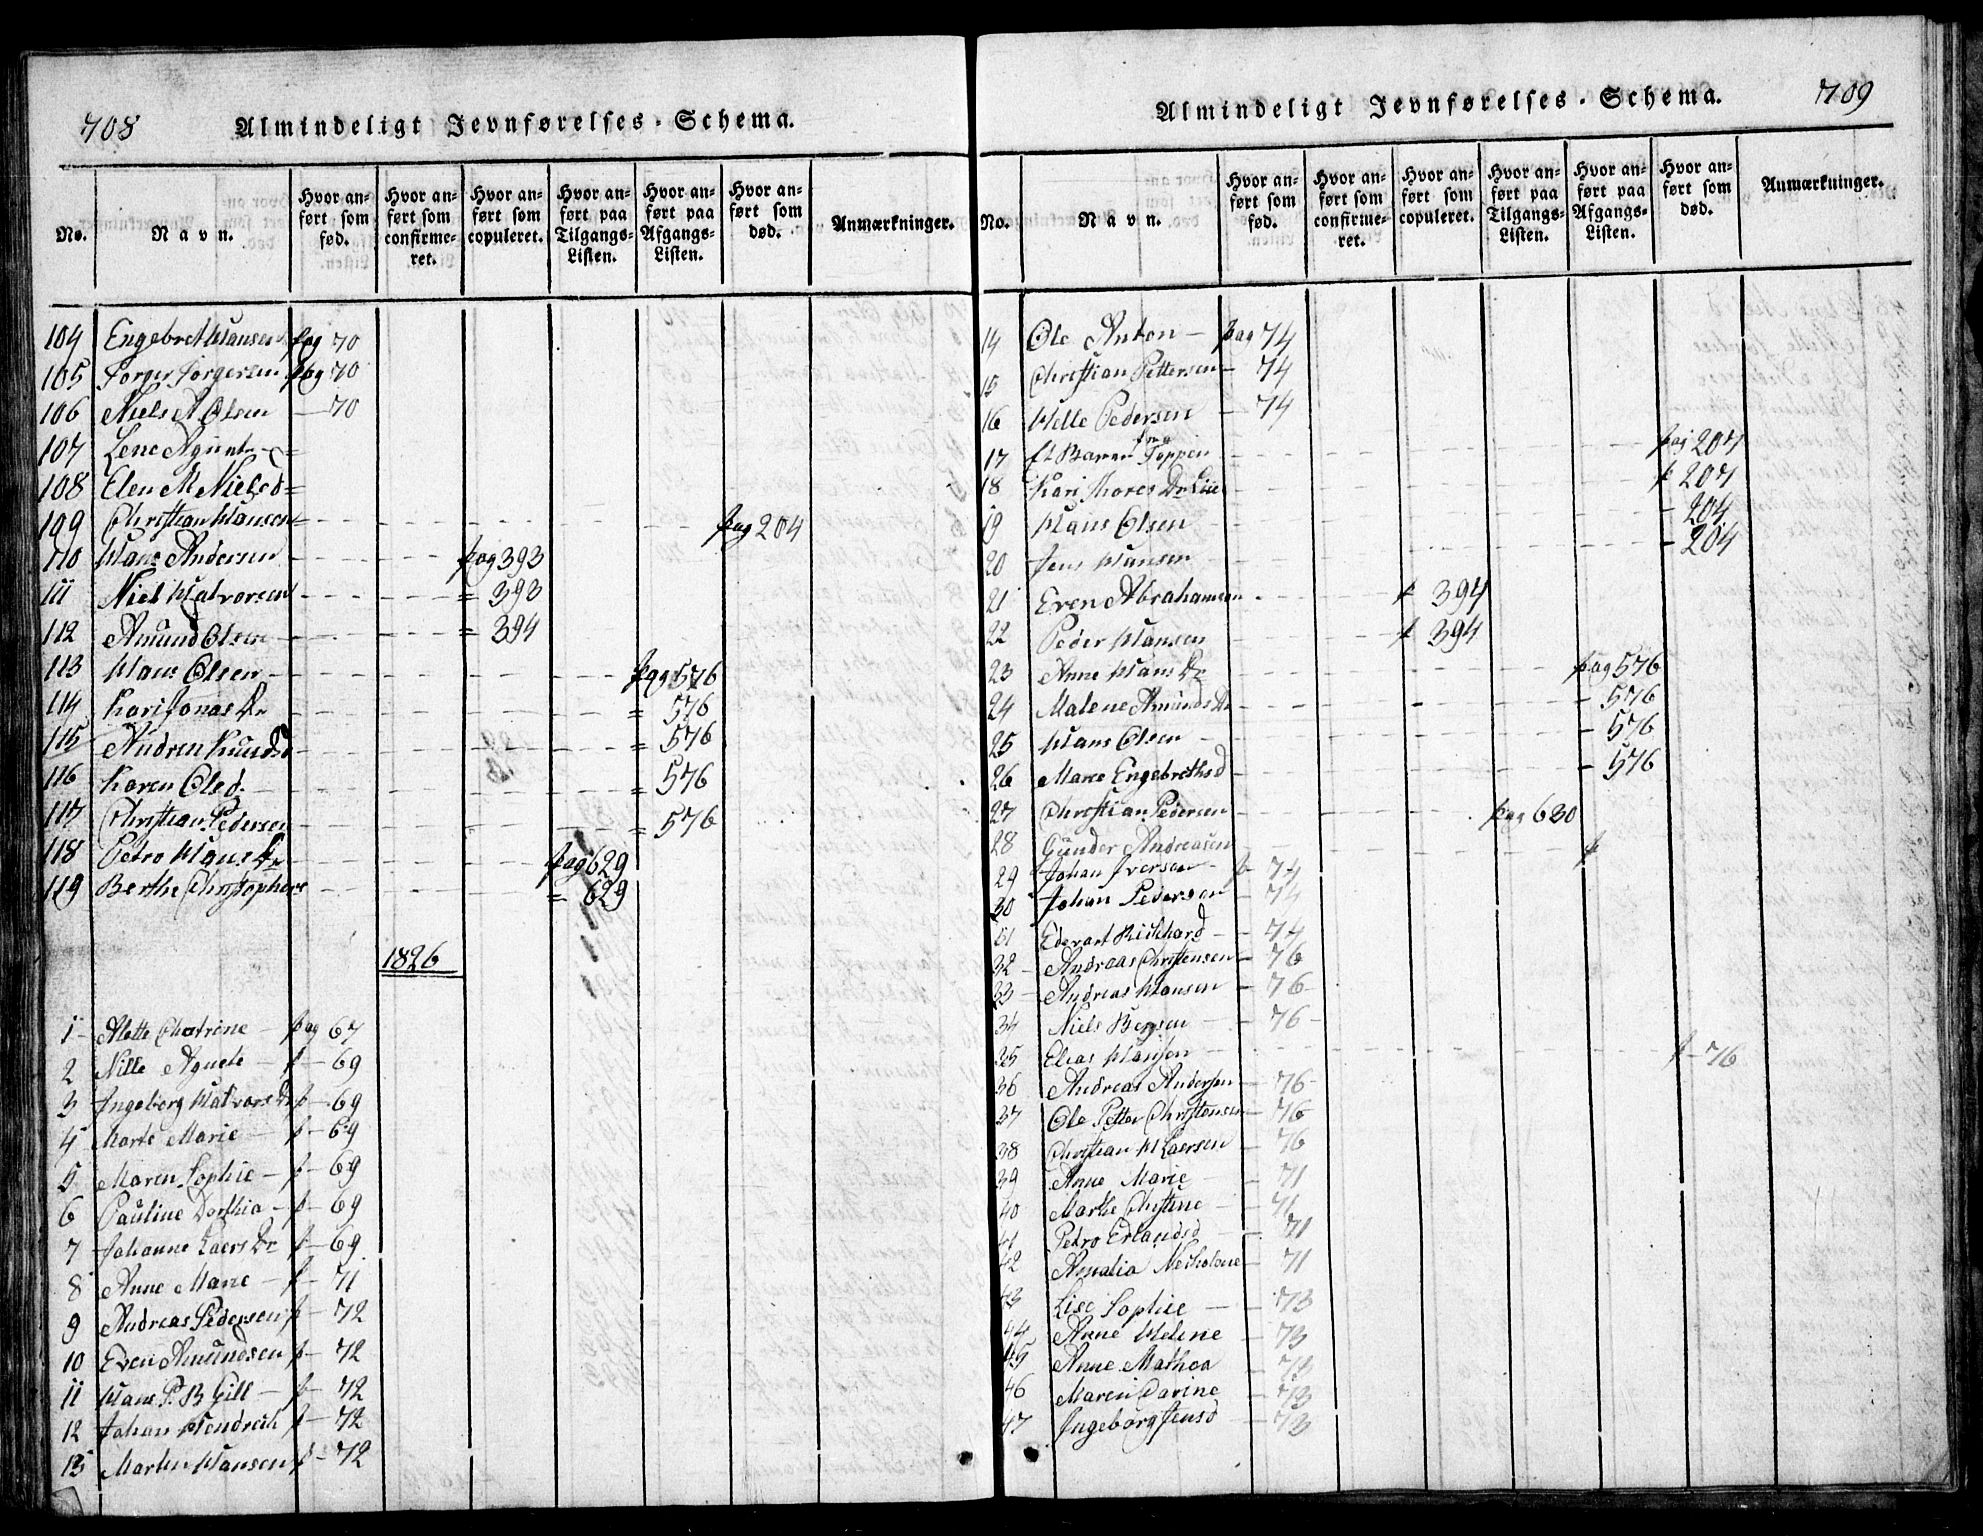 708
Almindeligt Jevnførelses-Schema.
No.
Navn.
Hvor anført som fød.
Hvor anført som confirmeret.
Hvor anført som copuleret.
Hvor anført paa Tilgangs-Listen.
Hvor anført paa Afgangs-Listen.
Hvor anført som død.
Anmærkninger.
104 Engebret Hansen pag 70
105 Jørger Jørgersen pag 70
106 Niels A. Olsen — 70
107 Lene Agunte =
108 Elen M. Nielsd =
109 Christian Hansen pag 204
110 Hans Andersen pag 393
111 Niels Halvorsen = 393
112 Amund Olsen = 394
113 Hans Olsen pag 576
114 Kari Jonas Dr = 576
115 Andrea Knudsd = 576
116 Karen Olsd. = 576
117 Christian Pedersen = 576
118 Petro Hans Dr pag 629
119 Berthe Christophers = 629
1826
1 Alette Chatrine — pag 67
2 Nille Agnete p — 69
3 Ingeborg Halvors Dr p — 69
4 Marte Marie p — 69
5 Maren Sophie — p — 69
6 Pauline Dorthia — p — 69
7 Johanne Laers Dr p — 69
8 Anne Marie — p — 71
9 Andreas Pedersen p — 72
10 Even Amundsen p — 72
11 Hans P. B. Gill — p — 72
12 Johan Hendrich p — 72
13 Martin Hansen p — 72
Almindeligt Jevnførelses-Schema.
709
No.
Navn.
Hvor anført som fød.
Hvor anført som confirmeret.
Hvor anført som copuleret.
Hvor anført paa Tilgangs-Listen.
Hvor anført paa Afgangs-Listen.
Hvor anført som død.
Anmærkninger.
14 Ole Anton — pag 74
15 Christian Pettersen — 74
16 Helle Pedersen — 74
17 Et Barn fra Toppen pag 207
18 Kari Thores Dr Lie p 207
19 Hans Olsen — 204
20 Jens Hansen — 204
21 Even Abrahamsen p 394
22 Peder Hansen p 394
23 Anne Hans Dr pag 576
24 Malene Amunds Dr — 576
25 Hans Olsen — 576
26 Maren Engebrethsd — 576
27 Christian Pedersen pag 630
28 Gunder Andreasen p
29 Johan Iversen p — 74
30 Johan Pedersen — 74
31 Edevart Rickhard — 74
32 Andreas Christensen — 76
33 Andreas Hansen — 76
34 Niels Bersen — 76
35 Elias Hansen p — 76
36 Andreas Andersen — 76
37 Ole Petter Christensen — 76
38 Christian H Laersen — 76
39 Anne Marie — 71
40 Marthe Christine — 71
41 Petro Erlandsd — 71
42 Amalia Nicholine — 71
43 Lise Sophie — 73
44 Anne Helene — 73
45 Anne Mathea — 73
46 Maren Carine — 73
47 Ingeborg Jensd — 73